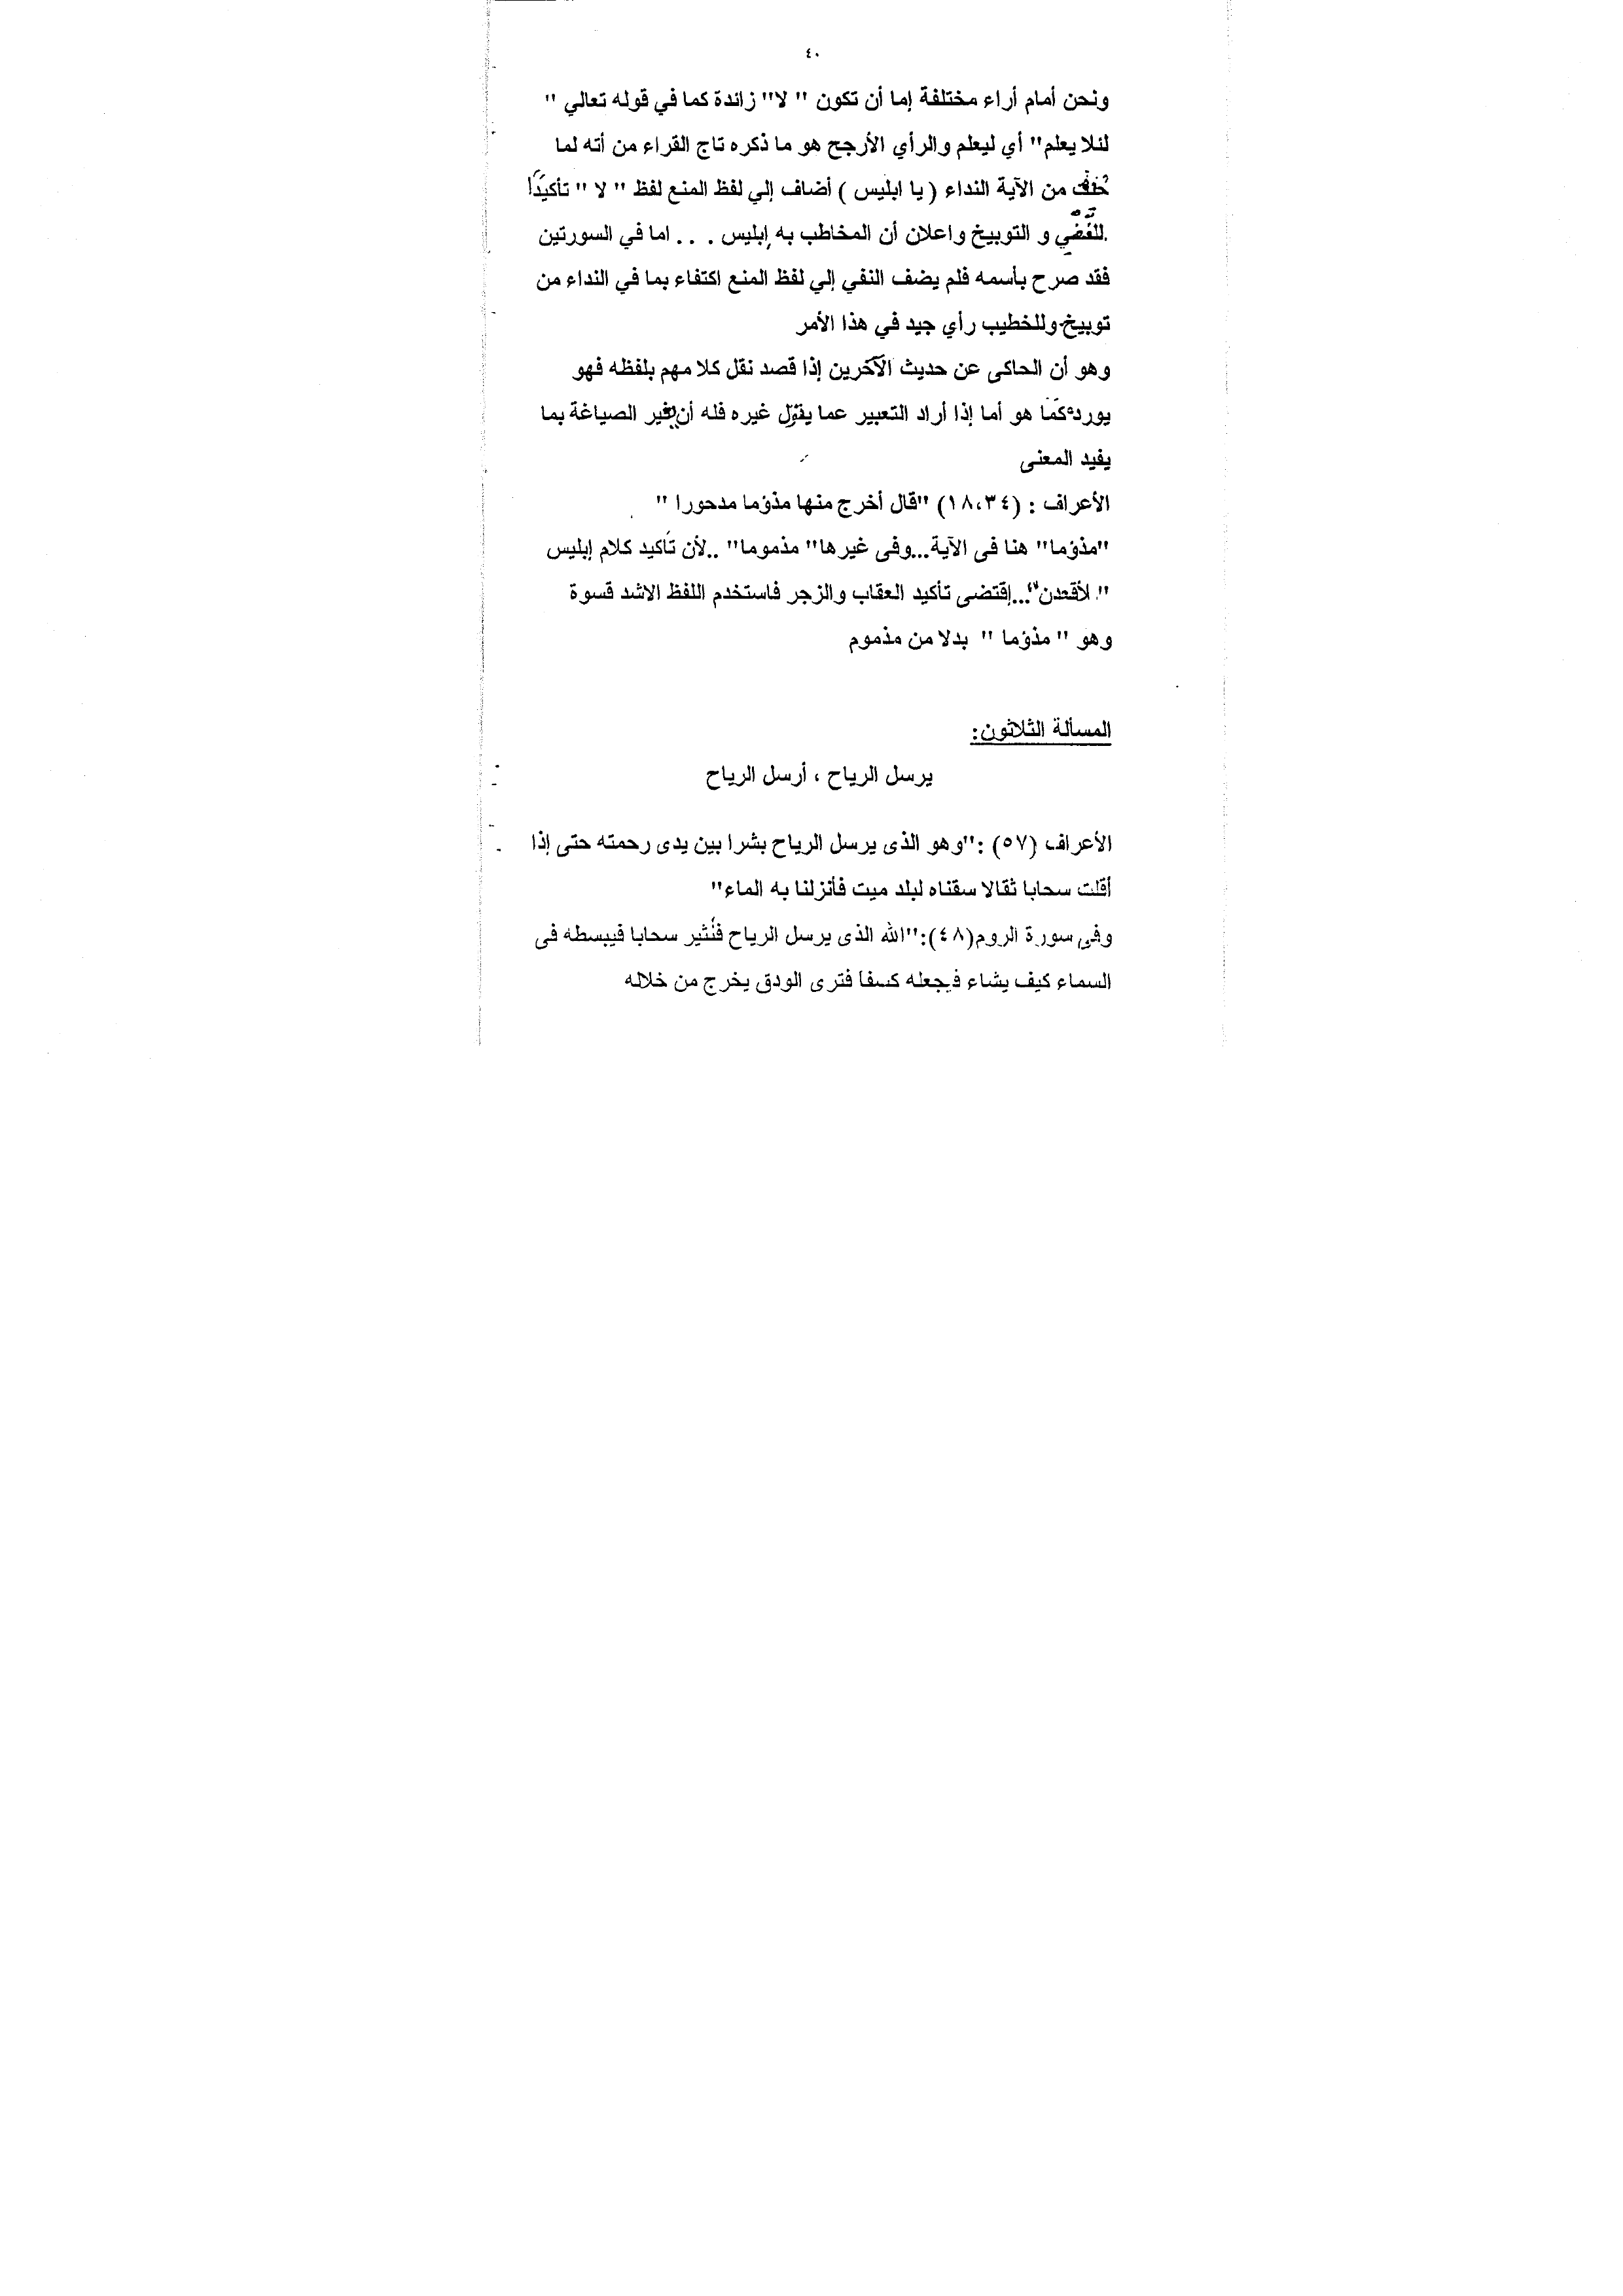 ٤٠
ونحن أمام أراء مختلفة إما أن تكون " لا" زائدة كما في قوله تعالي "
لئلا يعلم" أي ليعلم والرأي الأرجح هو ما ذكره تاج القراء من أته لما
من الآية النداء ( يا ابليس ) أضاف إلي لفظ المنع لفظ " لا " تأكيدًا
و التوبيخ واعلان أن المخاطب به إبليس . . . اما في السورتين
فقد صرح بأسمه فلم يضف النفي إلي لفظ المنع اكتفاء بما في النداء من
توبيخ وللخطيب رأي جيد في هذا الأمر
وهو أن الحاكى عن حديث الآخرين إذا قصد نقل كلا مهم بلفظه فهو
يورده كما هو أما إذا أراد التعبير عما يقول غيره فله أن يغير الصياغة بما
يفيد المعنى
الأعراف : (١٨،٣٤) "قال أخرج منها مذؤما مدحورا "
"مذؤما" هنا فى الآية...وفى غيرها" مذموما" ..لأن تأكيد كلام إبليس
" لأقعدن"...إقتضى تأكيد العقاب والزجر فاستخدم اللفظ الاشد قسوة
وهو " مذؤما " بدلا من مذموم
المسألة الثلاثون:
يرسل الرياح ، أرسل الرياح
الأعراف (٥٧) :"وهو الذى يرسل الرياح بشرا بين يدى رحمته حتى إذا
أقلت سحابا ثقالا سقناه لبلد ميت فأنزلنا به الماء"
وفى سورة الروم(٤٨):"الله الذى يرسل الرياح فتُثير سحابا فيبسطه فى
السماء كيف يشاء فيجعله كسفا فترى الودق يخرج من خلاله